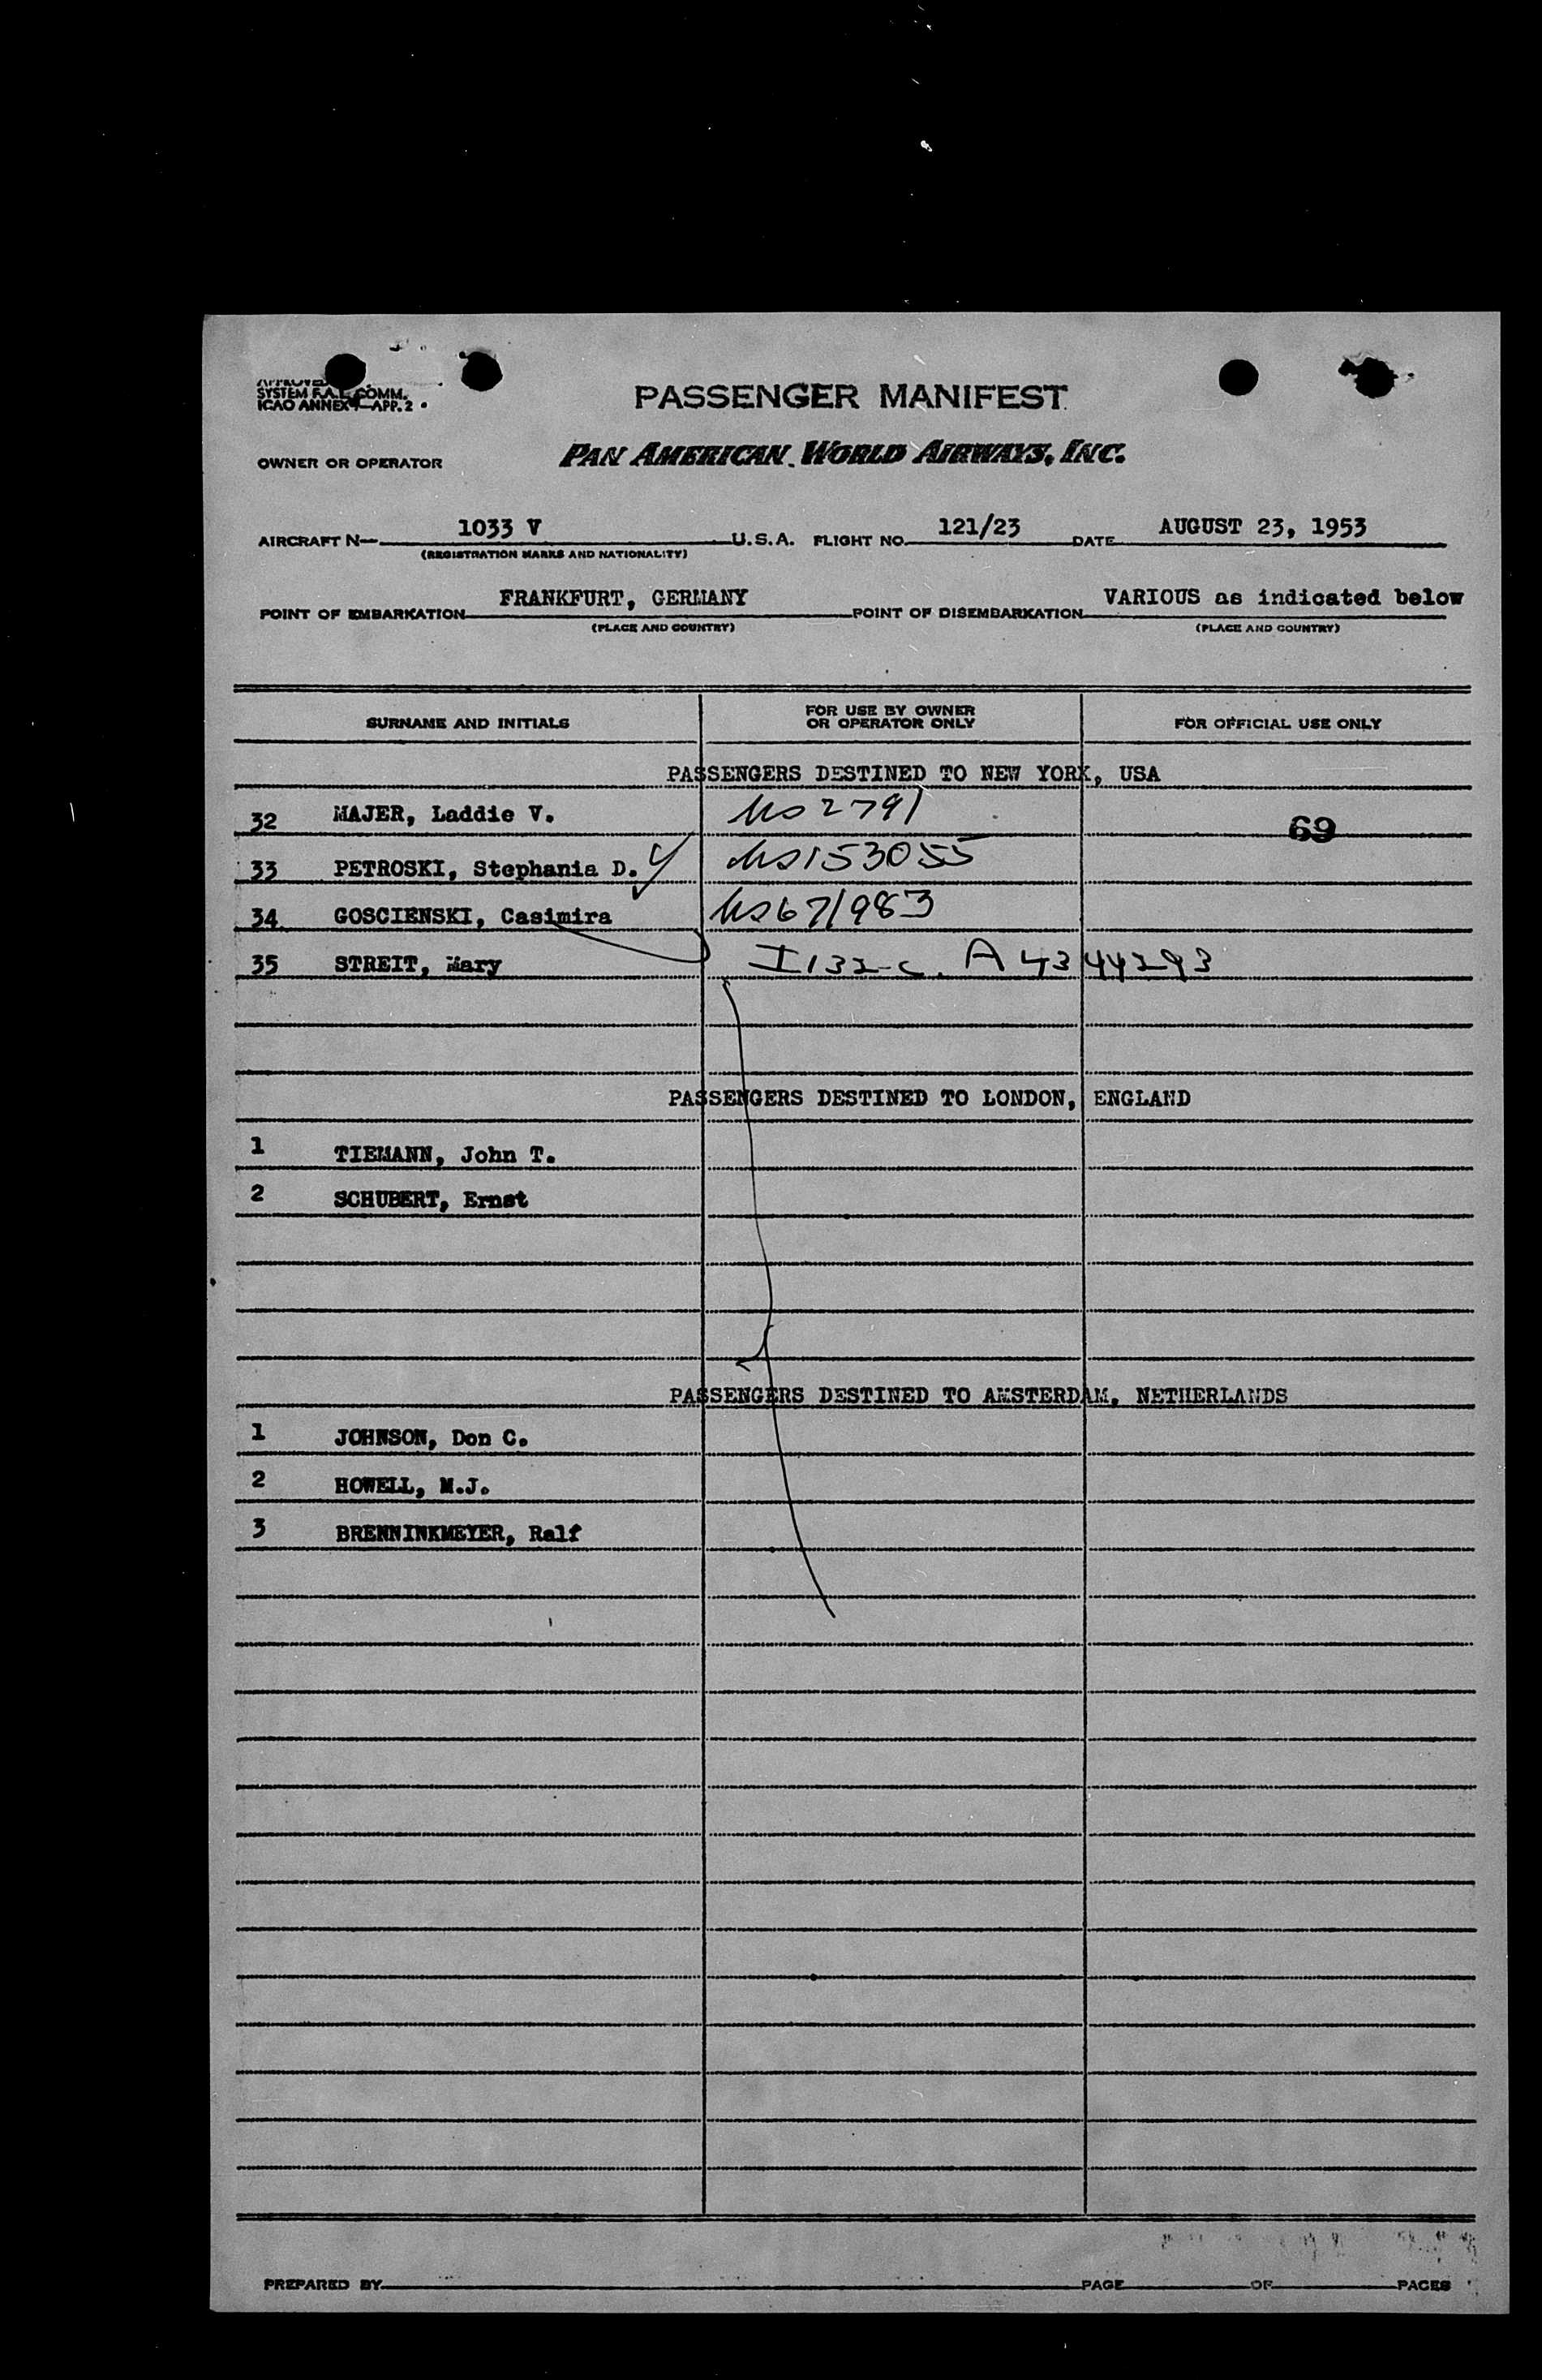 APPROVED
SYSTEM F.A.L. COMM.
ICAO ANNEX 9—APP. 2
PASSENGER MANIFEST
OWNER OR OPERATOR PAN AMERICAN WORLD AIRWAYS, INC.
AIRCRAFT N— 1033 V U.S.A. FLIGHT NO. 121/23 DATE AUGUST 23, 1953
(REGISTRATION MARKS AND NATIONALITY)
POINT OF EMBARKATION FRANKFURT, GERMANY POINT OF DISEMBARKATION VARIOUS as indicated below
(PLACE AND COUNTRY) (PLACE AND COUNTRY)
SURNAME AND INITIALS FOR USE BY OWNER OR OPERATOR ONLY FOR OFFICIAL USE ONLY
PASSENGERS DESTINED TO NEW YORK, USA
32 MAJER, Laddie V. US 2791 69
33 PETROSKI, Stephania D. US 153055
34 GOSCIENSKI, Casimira US 671983
35 STREIT, Mary I 132-c. A 4344293
PASSENGERS DESTINED TO LONDON, ENGLAND
1 TIEMANN, John T.
2 SCHUBERT, Ernst
PASSENGERS DESTINED TO AMSTERDAM, NETHERLANDS
1 JOHNSON, Don C.
2 HOWELL, M.J.
3 BRENNINKMEYER, Ralf
PREPARED BY PAGE OF PAGES